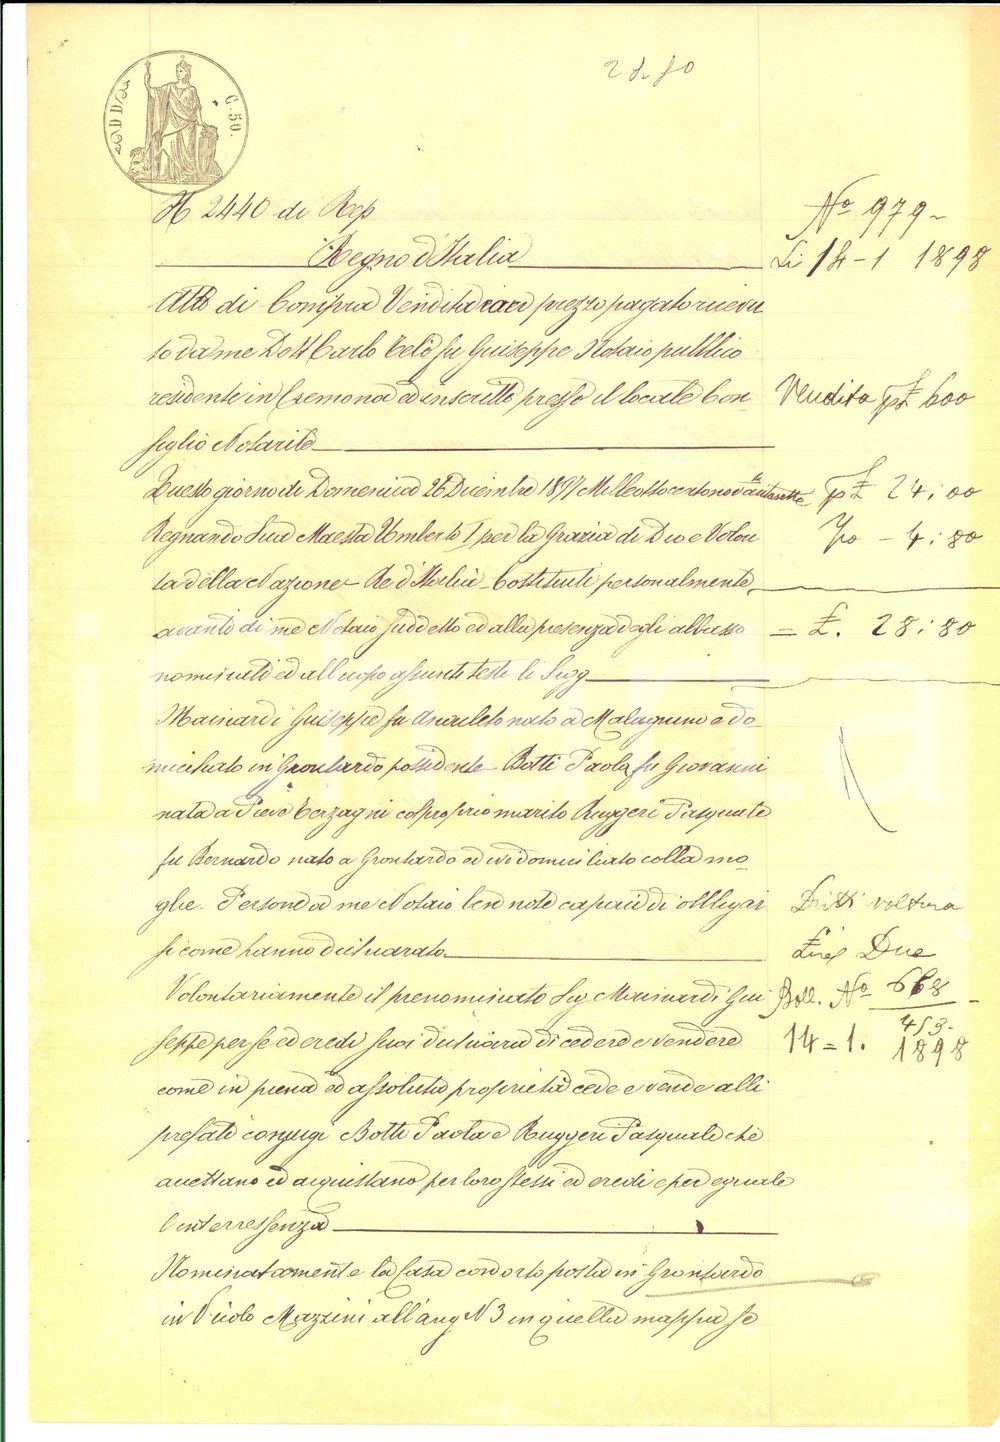 28.80
G. 50.
N 2440 di Rep
Regno d'Italia
Atto di Compra Vendita con prezzo pagato ricevu
to da me Dott Carlo Telò fu Guiseppe Notaio pubblico
residente in Cremona ed inscritto presso il locale Con
siglio Notarile
Questo giorno di Domenica 26 Dicembre 1897 Milleottocentonovantasette
Regnando Sua Maestà Umberto I per la Grazia di Dio e Volon
tà della Nazione Re d'Italia Costituiti personalmente
avanti di me Notaio suddetto ed alla presenza degli abbasso
nominati ed all'uopo assunti testi li Sigg
Mainardi Guiseppe fu Anacleto nato a Malagnino e do
miciliato in Grontardo possidente Botti Paola fu Giovanni
nata a Pieve Terzagni col proprio marito Ruggeri Pasquale
fu Bernardo nato a Grontardo ed ivi domiciliato colla mo
glie. Persone a me Notaio ben note capaci di obbligar
si come hanno dichiarato
Volontariamente il prenominato Sig Mainardi Gui
seppe per sè ed eredi suoi dichiara di cedere e vendere
come in piena ed assoluta proprietà cede e vende alli
prefati conjugi Botti Paola e Ruggeri Pasquale che
accettano ed acquistano per loro stessi ed eredi e per eguale
interressenza
Nominatamente la Casa con orto posta in Grontardo
in Vicolo Mazzini all'ang N 3 in quella mappa se
No 979
Li 14-1 1898
Vendita p£ 600
p£ 24:00
4:80
= £. 28:80
Dritti voltura
Lire Due
Boll. No 668
453
14=1. 1898